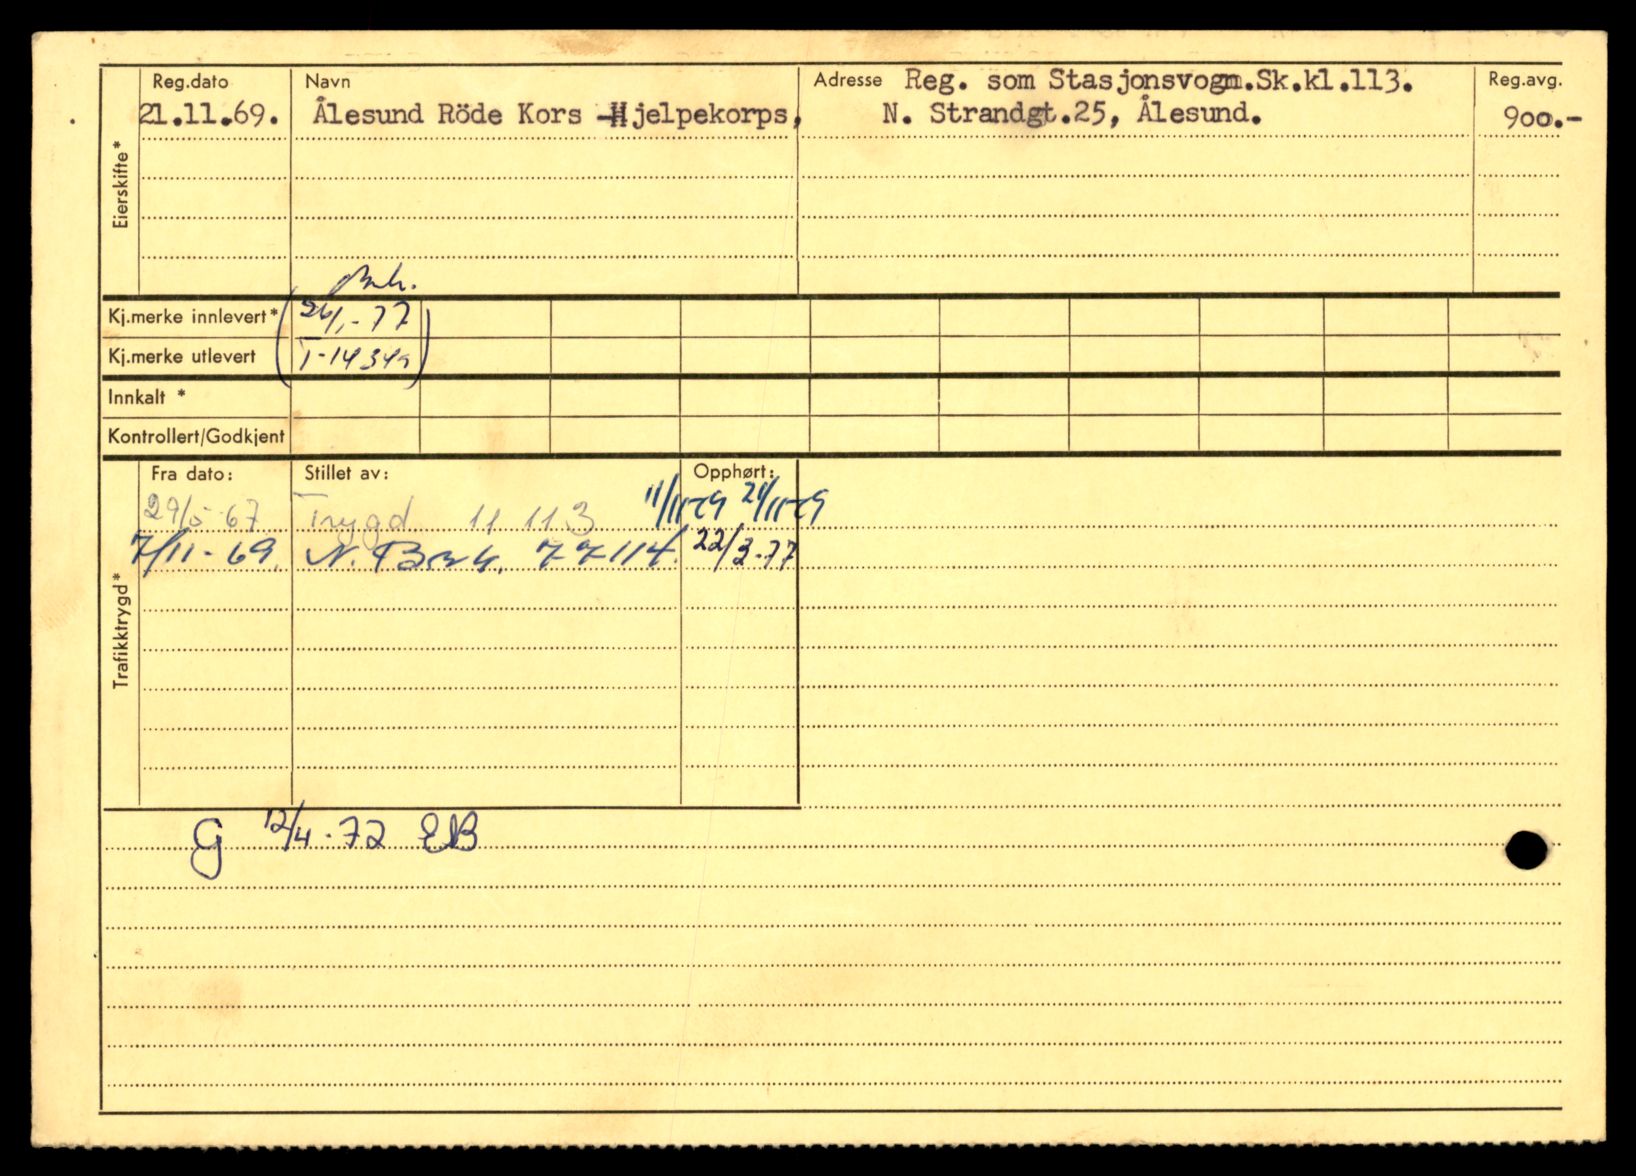 Reg.dato Navn Adresse Reg. som Stasjonsvogn.Sk.kl.113. Reg.avg.
21.11.69. Ålesund Röde Kors -Hjelpekorps, N. Strandgt.25, Ålesund. 900.-
Eierskifte*
Kj.merke innlevert* 24/1-77
Kj.merke utlevert T-14349
Innkalt *
Kontrollert/Godkjent
Fra dato: Stillet av: Opphørt:
29/5-67 Trygd 11 113 11/11-69 21/11-69
7/11-69. N. Brk. 77114. 22/3-77
Trafikktrygd*
G 12/4-72 EB